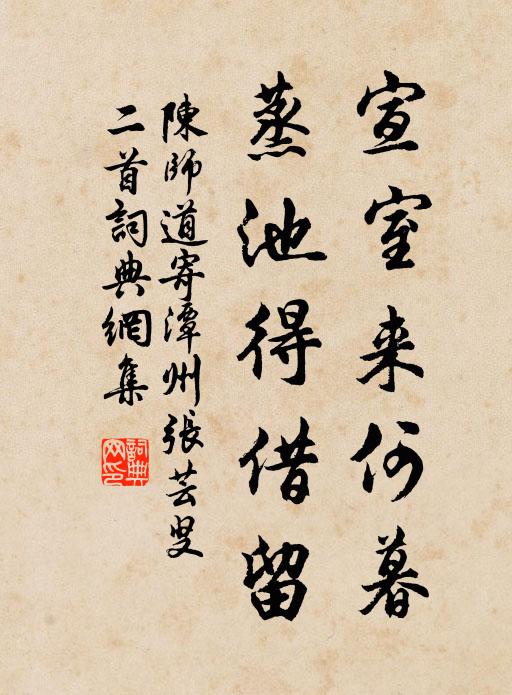 宣室来何暮
蒸池得借留
陳師道寄潭州張芸叟
二首詞典網集
詞典网印